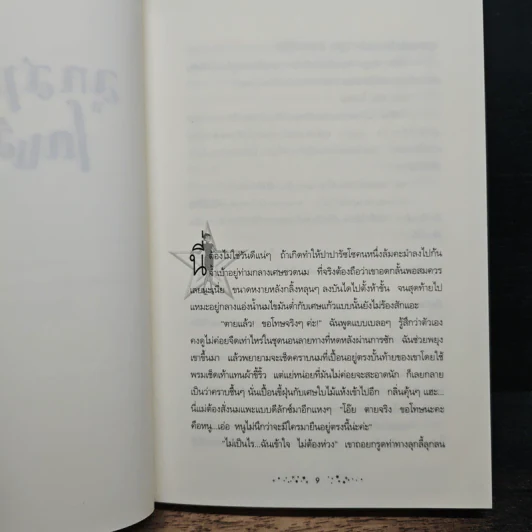 นี่ต้องไม่ใช่วันดีแน่ๆ ถ้าเกิดทำให้ปาปารัซโซคนหนึ่งล้มคะมำลงไปก้น
จ้ำเบ้าอยู่ท่ามกลางเศษขวดนม ที่จริงต้องถือว่าเขาอดกลั้นพอสมควร
เลยนะเนี่ย ขนาดหงายหลังกลิ้งหลุนๆ ลงบันไดไปตั้งห้าขั้น จนสุดท้ายไป
แหมะอยู่กลางแอ่งน้ำนมไขมันต่ำกับเศษแก้วแบบนั้นยังไม่ร้องสักแอะ
"ตายแล้ว! ขอโทษจริงๆ ค่ะ!" ฉันพูดแบบเบลอๆ รู้สึกว่าตัวเอง
คงดูไม่ค่อยจืดเท่าไหร่ในชุดนอนลายทางที่หดหลังผ่านการซัก ฉันช่วยพยุง
เขาขึ้นมา แล้วพยายามจะเช็ดคราบนมที่เปื้อนอยู่ตรงบั้นท้ายของเขาโดยใช้
พรมเช็ดเท้าแทนผ้าขี้ริ้ว แต่แย่หน่อยที่มันไม่ค่อยจะสะอาดนัก ก็เลยกลาย
เป็นว่าคราบชื้นๆ นั่นเปื้อนขี้ฝุ่นกับเศษใบไม้แห้งเข้าไปอีก กลิ่นตุ้นๆ แฮะ...
นี่แม่ต้องสั่งนมแพะแบบดีลักซ์มาอีกแหงๆ "โอ๊ย ตายจริง ขอโทษนะคะ
คือหนู...เอ่อ หนูไม่นึกว่าจะมีใครมายืนอยู่ตรงนี้น่ะค่ะ"
"ไม่เป็นไร...ฉันเข้าใจ ไม่ต้องห่วง" เขาถอยกรูดท่าทางลุกลี้ลุกลน
๑